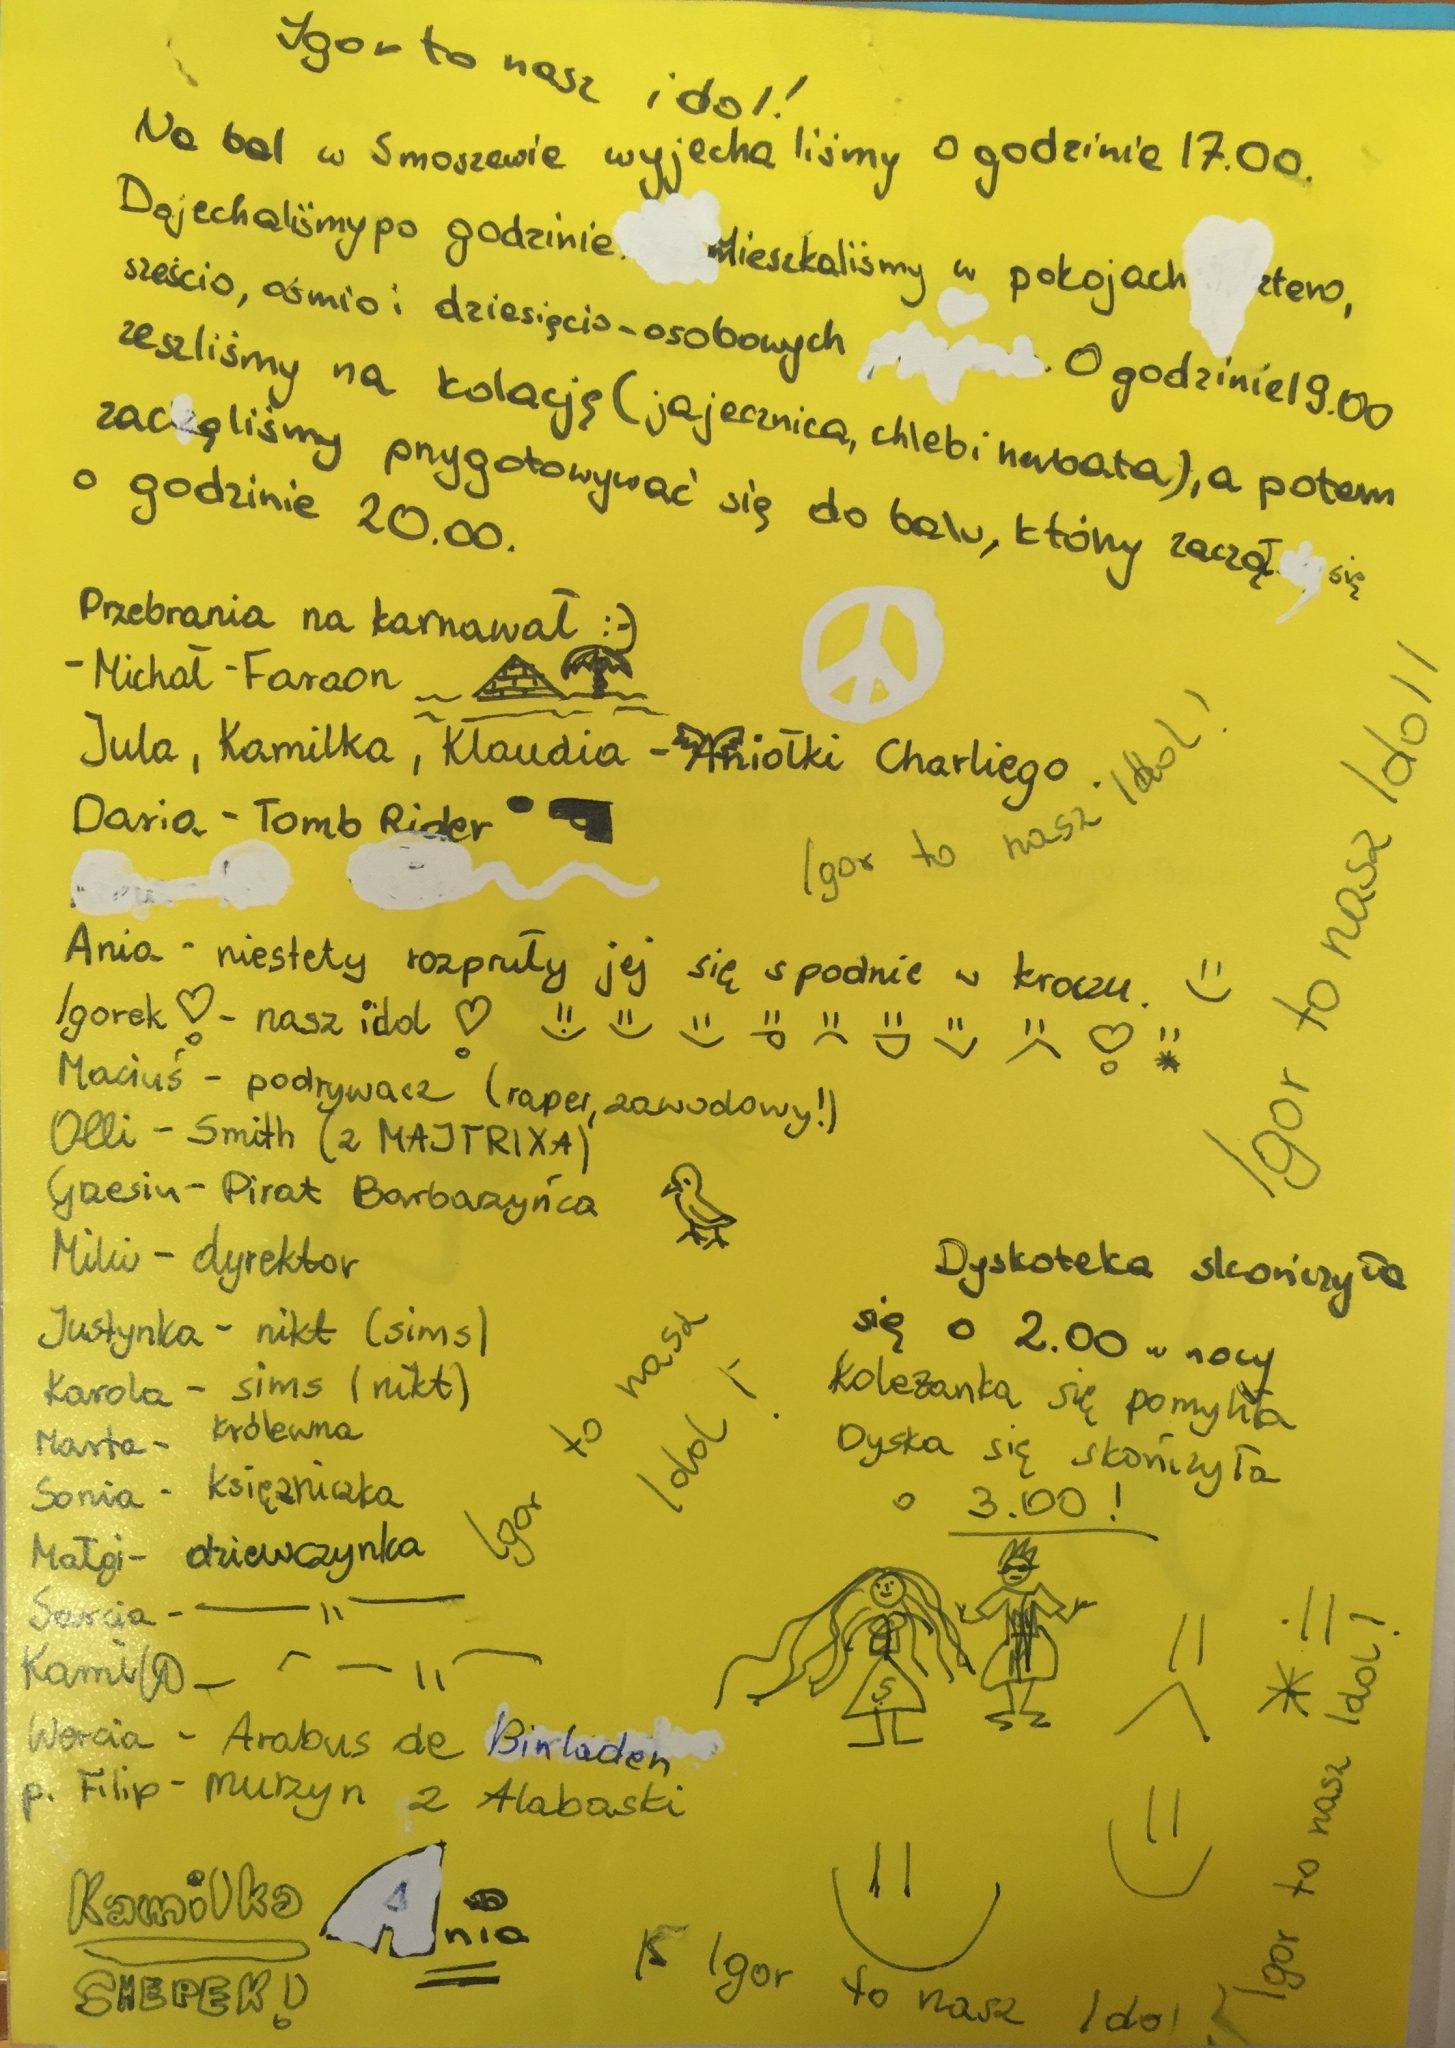 Igor to nasz idol!
Na bal w Smoszewie wyjechaliśmy o godzinie 17.00.
Dojechaliśmy po godzinie. Mieszkaliśmy w pokojach cztero,
sześcio, ośmio i dziesięcio-osobowych. O godzinie 19.00
zeszliśmy na kolację (jajecznica, chleb i herbata), a potem
zaczęliśmy przygotowywać się do balu, który zaczął się
o godzinie 20.00.
Przebrania na karnawał :-)
- Michał - Faraon
Jula, Kamilka, Klaudia - Aniołki Charliego.
Daria - Tomb Rider
Igor to nasz Idol!
Igor to nasz Idol!
Ania - niestety rozpruły jej się spodnie w kroczu.
Igorek - nasz idol
Maciuś - podrywacz (raper, zawodowy!)
Olli - Smith (z MAJTRIXA)
Grzesiu - Pirat Barbarzyńca
Miliu - dyrektor
Justynka - nikt (sims)
Karola - sims (nikt)
Marta - królewna
Sonia - księżniczka
Małgi - dziewczynka
Sarcia - —— 11 ——
Kamil(A) - — 11 —
Wercia - Arabus de Binladen
p. Filip - murzyn z Alabaski
Igor to nasz Idol!
Dyskoteka skończyła
się o 2.00 w nocy
Koleżanka się pomyliła
Dyska się skończyła
o 3.00!
S
Kamilka
SHEPEK!
Ania
K Igor to nasz Idol!
Igor to nasz Idol!